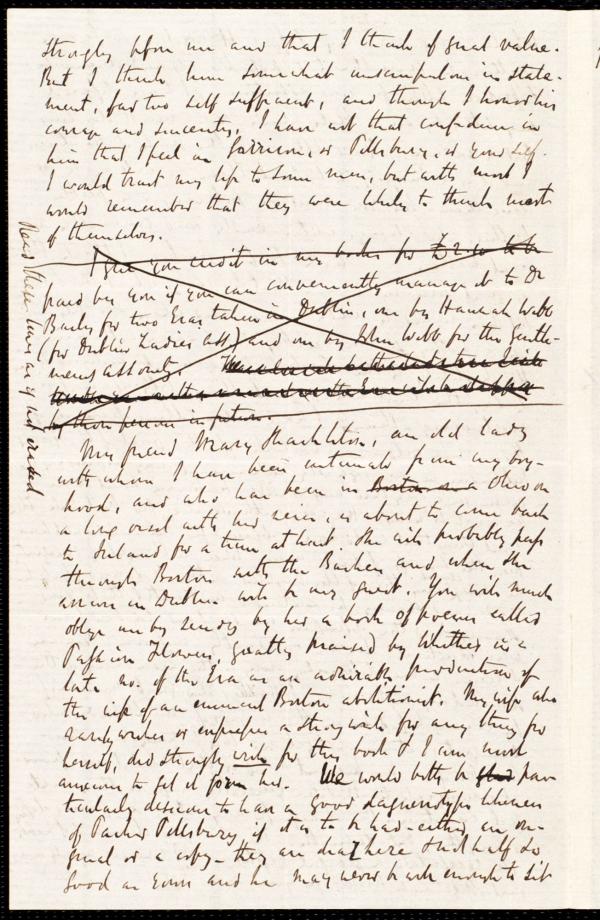 strongly upon me and that I think of great value.
But I think him somewhat unscrupulous in state-
ment, far too self sufficient, and though I honor his
courage and sincerity, I have not that confidence in
him that I feel in Garrison, or Pillsbury, or yourself.
I would trust my life to some men, but with most I
would remember that they were likely to think most
of themselves.
I give you credit in my books for £2.10 to be
paid by you if you can conveniently manage it to Dr
Bailey for two Eras taken in Dublin, one by Hannah Webb
(for Dublin Ladies Ass) and one by John Webb for the Gentle-
mens association.
by those persons in future.
Read these lines as if not erased
My friend Mary Shackleton, an old lady
with whom I have been intimate from my boy-
hood, and who has been in Ohio on
a long visit with her niece, is about to come back
to Ireland for a time at least. She will probably pass
through Boston with the Barkers and when she
arrives in Dublin will be my guest. You will much
oblige me by sending by her a book of poems called
Passion Flowers, greatly praised by Whittier in a
late no. of the Era as an admirable production of
the wife of an eminent Boston abolitionist. My wife who
rarely wishes or expresses a strong wish for any thing for
herself, did strongly wish for this book & I am most
anxious to get it for her. We would both be par-
ticularly desirous to have a good daguerrotype likeness
of Parker Pillsbury if it is to be had - either an ori-
ginal or a copy - they are dear here and half so
good as yours and he may never be well enough to sit